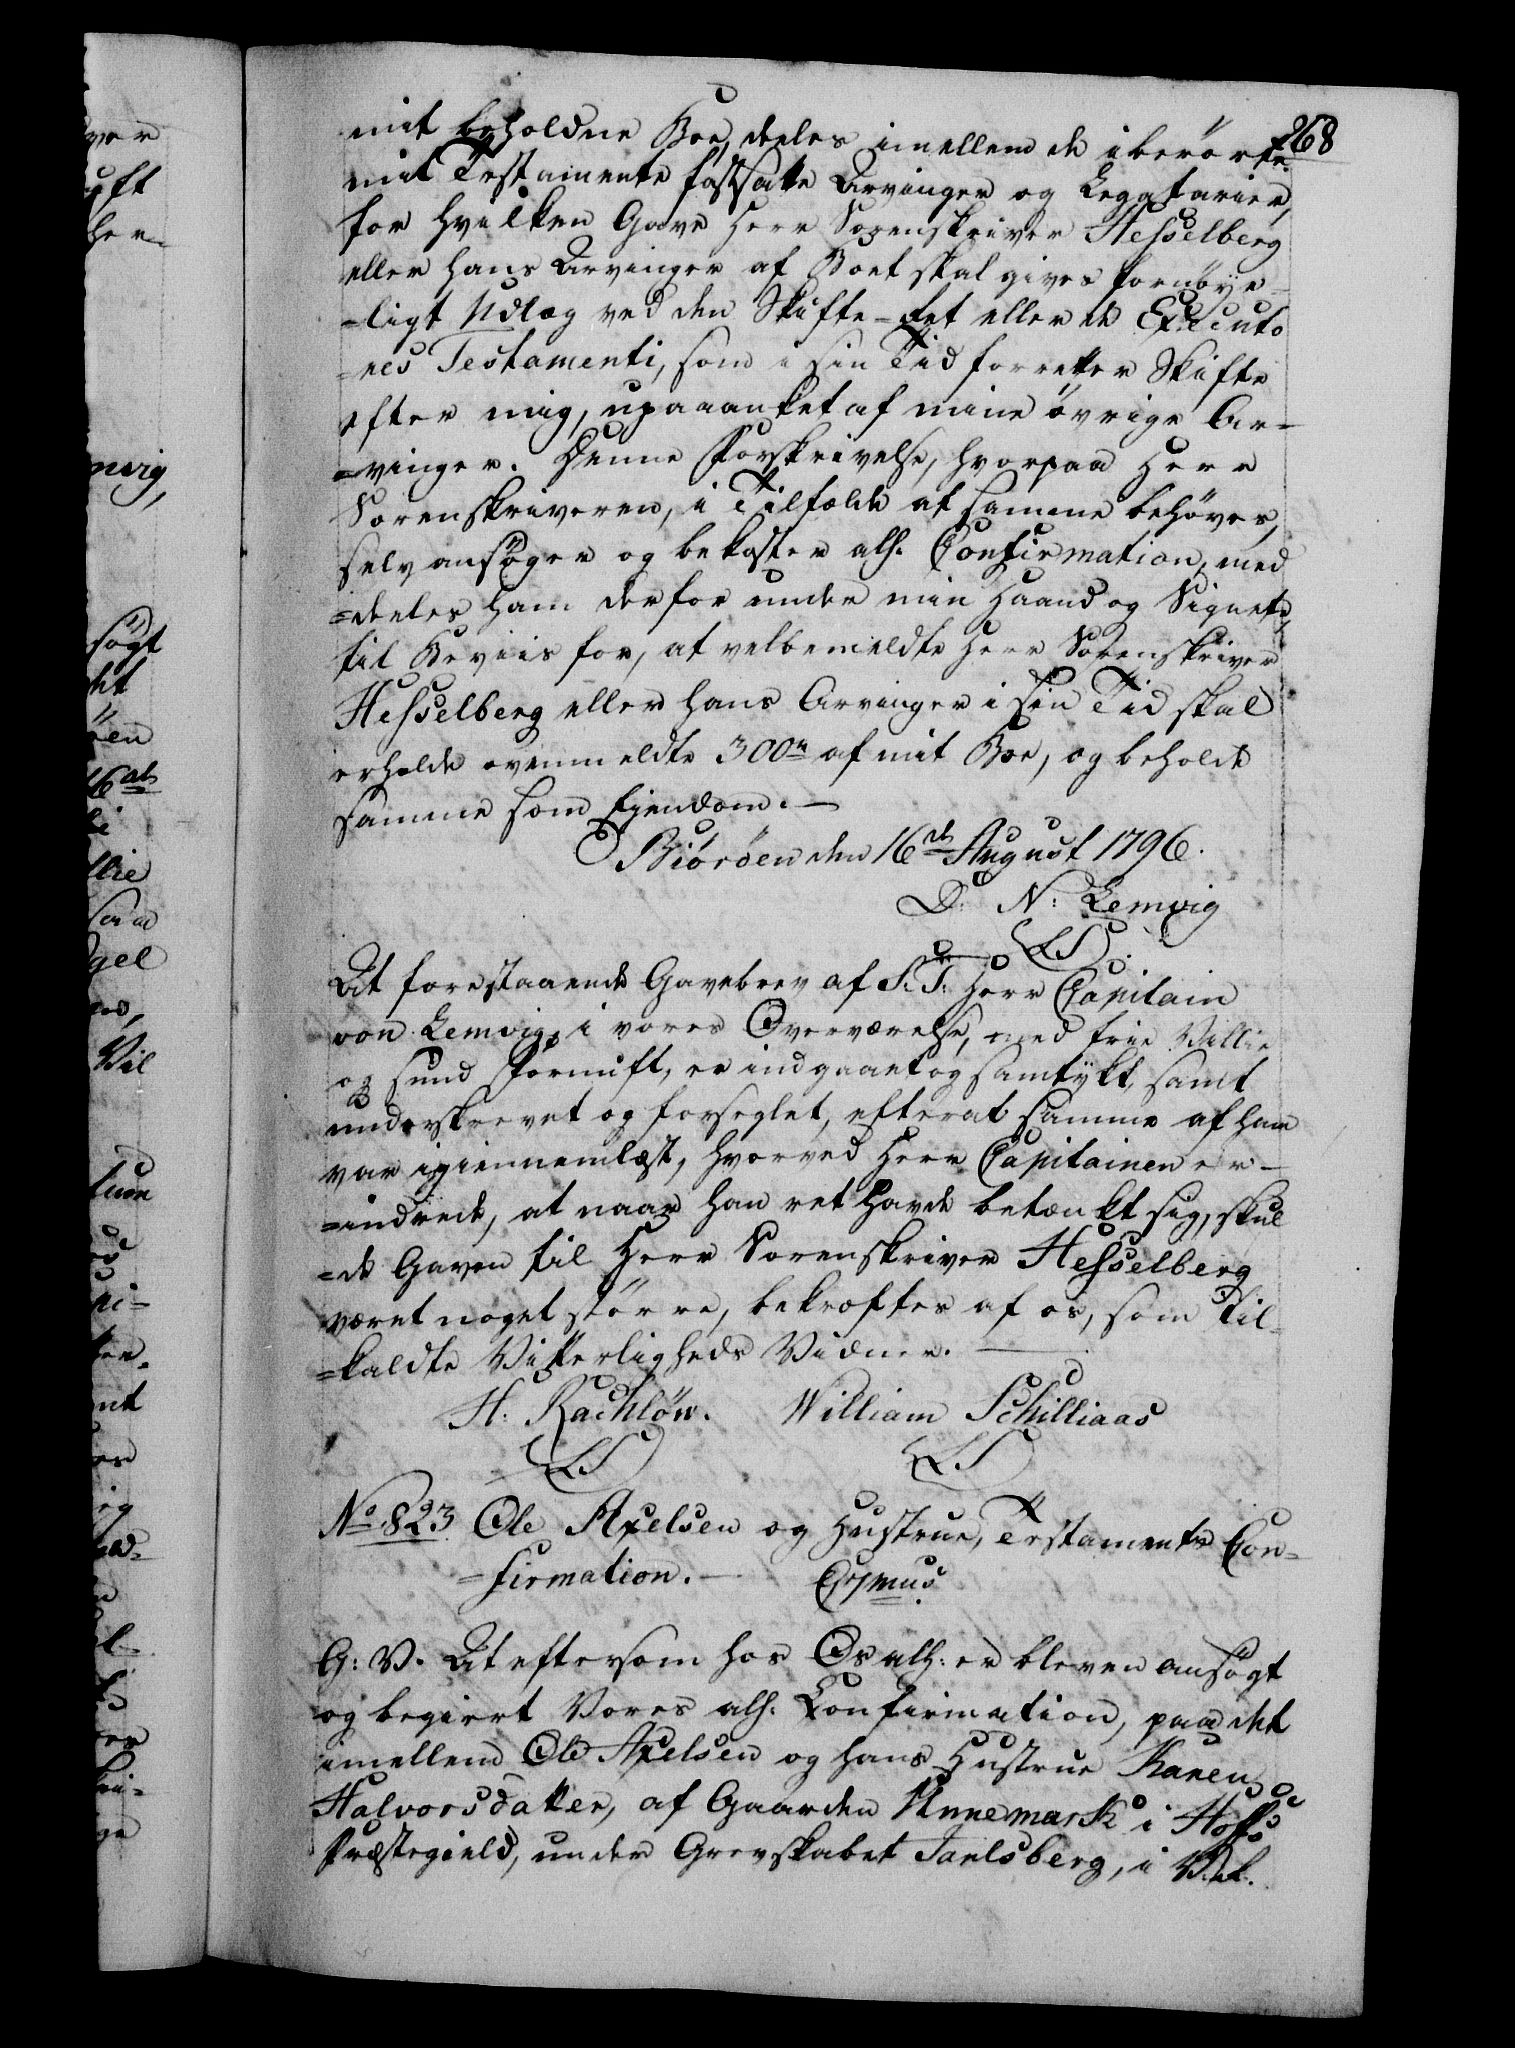 268
mit beholdne Boe, deeles imellem de i berørte
mit Testamente fastsatte Arvinger og Legatarier,
for hvilken Gave Herr Sorenskriver Hesselberg
eller hans Arvinger af Boet skal gives fornøye-
=ligt Udlæg ved den Skifte-Ret eller de Executo
=res Testamenti, som i sin Tid forretter Skifte
efter mig, upaaanket af mine øvrige Ar-
=vinger. Denne Forskrivelse, hvorpaa Herr
Sorenskriveren, i Tilfælde at samme behøves,
selv ansøger og bekoster alh. Confirmation, med
=deeles ham derfor under min Haand og Signete,
til Beviis for, at velbemeldte Herr Sorenskriver
Hesselberg eller hans Arvinger i sin Tid skal
erholde ovenmeldte 300 af mit Boe, og beholde
samme som Ejendom.
Biørøen den 16de August 1796.
D: N: Lemvig
(LS)
At forestaaende Gavebrev af S. T. Herr Capitain
von Lemvig, i vores Overværelse, med frie Villie
og sund Fornuft, er indgaaet og samtykt, samt
underskrevet og forseglet, efterat samme af ham
var igiennemlæst, hvorved Herr Capitainen er-
=indrede, at naar han ret havde betænkt sig, skul
=de Gaven til Herr Sorenskriver Hesselberg
været noget større, bekræftes af os, som til-
=kaldte Vitterligheds Vidner.
H: Rachløw. William Schilliaas
(LS) (L.S)
No 823 Ole Axelsen og Hustrue, Testaments Con-
=firmation.
G: V. At eftersom hos Os alh: er bleven ansøgt
og begiert Vores alh. Confirmation, paa det
imellem Ole Axelsen og hans Hustrue Karen
Halvorsdatter, af Gaarden Unnemark i Hoffs
Præstegield, under Grevskabet Jarlsberg, i V.